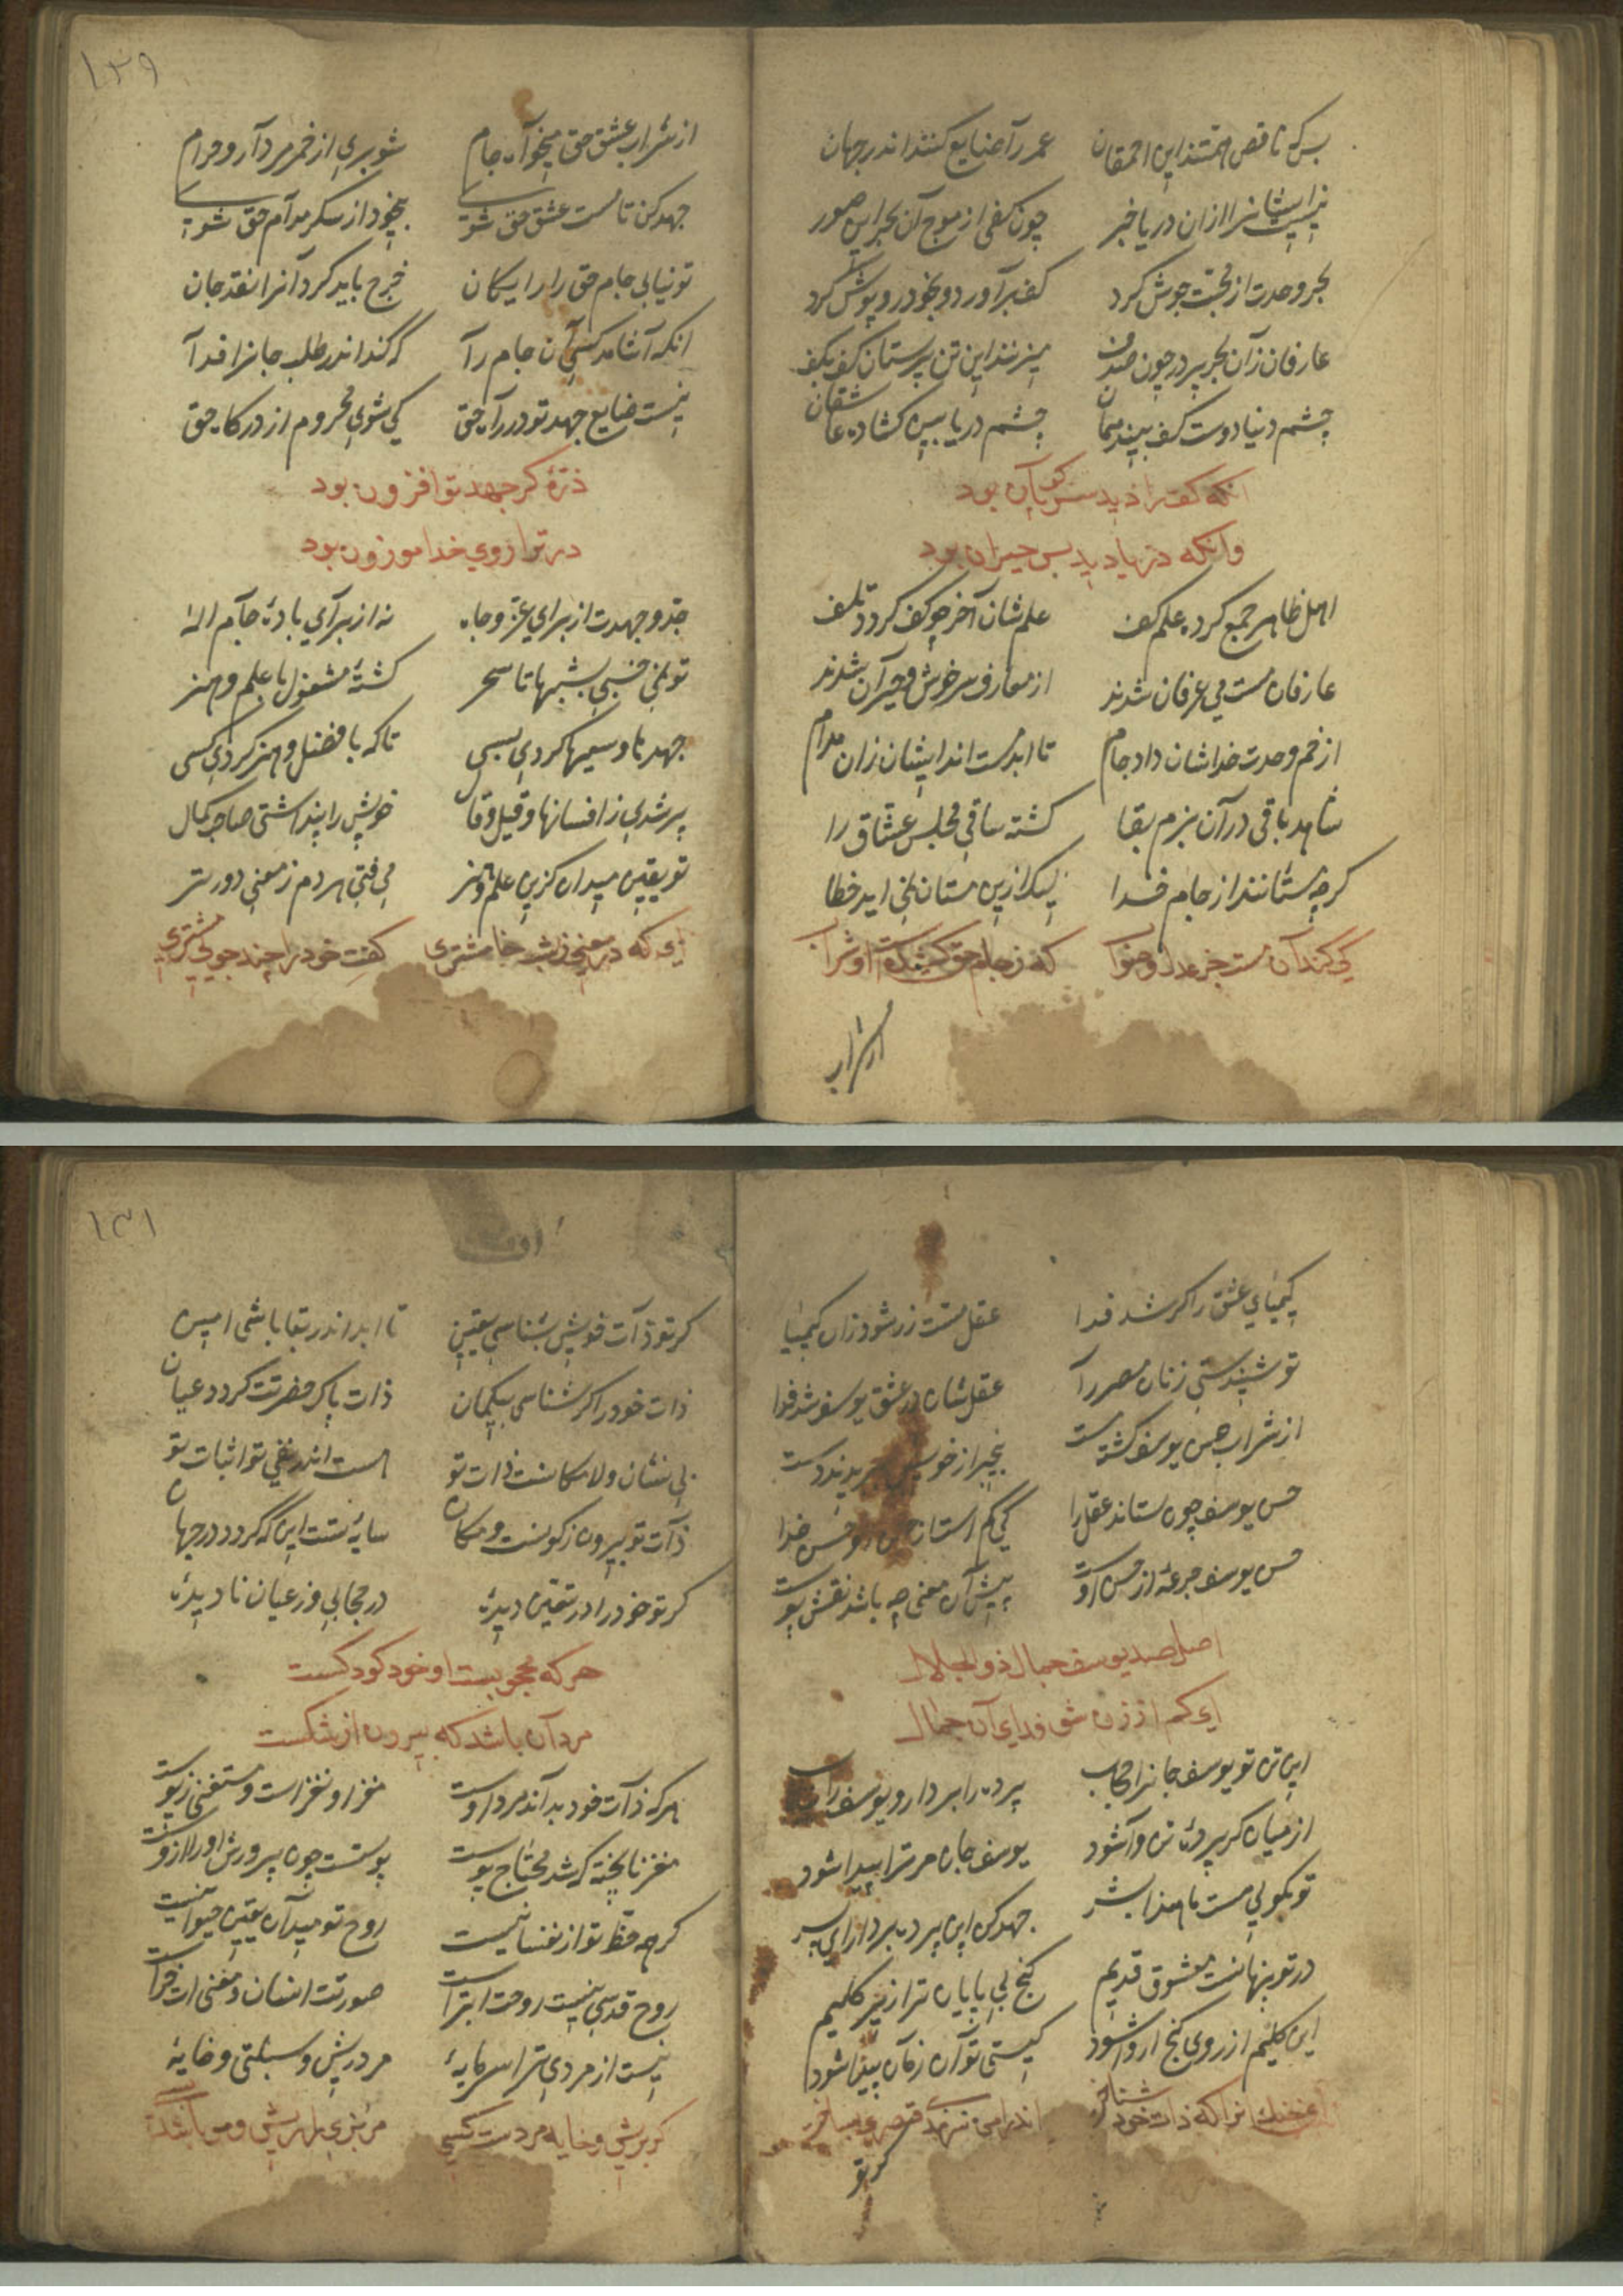 بس که ناقص همتند این احمقان عمر را ضایع کنند اندر جهان
نیست ایشانرا ازان دریا خبر چون کفی از موج آن بحر این صور
بحر وحدت از محبت جوش کرد کف برآورد و بخود روپوش کرد
عارفان زآن بحر پر در چون صدف میزنند این تن پرستان کف بکف
چشم دنیا دوست کف بیند همان چشم دریا بین کشاده عاشقان
انکه کف را دید سر کویان بود
وانکه دریا دید بس حیران بود
اهل ظاهر جمع کرده علم کف علم شان آخر چو کف کردد تلف
عارفان مست می عرفان شدند از معارف سرخوش و حیران شدند
از خم وحدت خداشان داد جام تا ابد مست اند ایشان زان مدام
شاهد باقی در آن بزم بقا کشته ساقی مجلس عشاق را
کرچه مستانند از جام خدا لیک ازین مستان نمی اید خطا
کی کند آن مست جز عدل و صواب که ز جام حق کشیدست او شراب
از شراب
۱۳۹
از شراب عشق حق میخواه جام شو بری از خمر مردار و حرام
جهد کن تا مست عشق حق شوی بیخود از سکر مدام حق شوی
تو نیابی جام حق را رایکان خرج باید کرد آنرا نقد جان
انکه آشامد کسی آن جام را کو کند اندر طلب جانرا فدا
نیست ضایع جهد تو در راه حق کی شوی محروم از درکاه حق
ذرۀ کر جهد تو افزون بود
در ترازوی خدا موزون بود
جد و جهدت از برای عز و جاه نه از برای بادۀ جام اله
تو نمی خسبی بشبها تا سحر کشتۀ مشغول با علم و هنر
جهدها و سعیها کردی بسی تا که با فضل و هنر کردی کسی
پر شدی ز افسانها و قیل و قال خویش را پنداشتی صاحب کمال
تو یقین میدان کزین علم و هنر می فتی هر دم ز معنی دورتر
ای که در معنی ز شب خامشتری کفت خود را چند جویی مشتری
کیمیای عشق را کر شد فدا عقل مست زر شود زان کیمیا
تو شنیدستی زنان مصر را عقل شان در عشق یوسف شد فدا
از شراب حسن یوسف کشته مست بیخبر از خویش ببریدند دست
حسن یوسف چون ستاند عقل را کی کم استاند حسن خدا
حسن یوسف جرعۀ از حسن اوست پیش آن معنی چه باشد نقش پوست
اصل صد یوسف جمال ذوالجلال
ای کم از زن شو فدای آن جمال
این تن تو یوسف جانرا حجاب پرده را بردار و یوسف را بیاب
از میان کر پردۀ تن وا شود یوسف جان مر ترا پیدا شود
تو مکو لی مست ما هذا بشر جهد کن این پرده بردار ای پسر
در تو پنهانست معشوق قدیم کنج بی پایان ترا زیر کلیم
این کلیم از روی کنج ار وا شود کیستی تو آن زمان پیدا شود
ای خنک انرا که ذات خود شناخت اندر امن سرمدی قصری بساخت
کر تو
۱۳۱
کر تو ذات خویش بشناسی یقین تا ابد اندر بقا باشی امین
ذات خود را کر شناسی بیکمان ذات پاک حضرتت کردد عیان
بی نشان و لامکانست ذات تو هست اندر نفی تو اثبات تو
ذات تو بیرون ز کونست و مکان سایۀ تست این که کردد در جهان
کر تو خود را در تعین دیدۀ در حجابی وز عیان نادیدۀ
هر که محجوبست او خود کودکست
مرد آن باشد که بیرون از شکست
هر که ذات خود بداند مرد اوست مغز او نغز است و مستغنی ز پوست
مغز ناپخته که شد محتاج پوست پوستست چون پرورش او را ازوست
کرچه حظ تو از نفسانیست روح تو میدان یقین حیوانیست
روح قدسی نیست روحت ابتر است صورتت انسان و معنی ات خر است
نیست از مردی ترا سرمایۀ مرد ریش و سبلتی و خایۀ
کر بریش و خایه مردست کسی هر بزی را ریش و مو باشد بسی